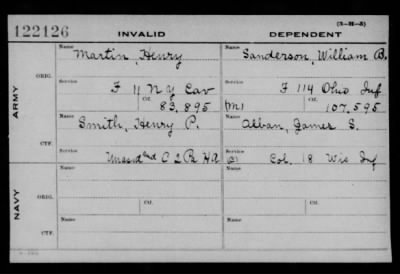 (3-21-5)
122126 INVALID DEPENDENT
ARMY
ORIG.
Name Martin, Henry
Service F 11 N Y Cav
Ctf. 83.895
Name Sanderson, William B.
Service F 114 Ohio Inf
(M) Ctf. 107.595
CTF.
Name Smith, Henry P.
Service Unassd C 2 Pa H A
Name Alban, James S.
Service Col. 18 Wis Inf
NAVY
ORIG.
Name
Ctf.
Name
Ctf.
CTF.
Name
Name